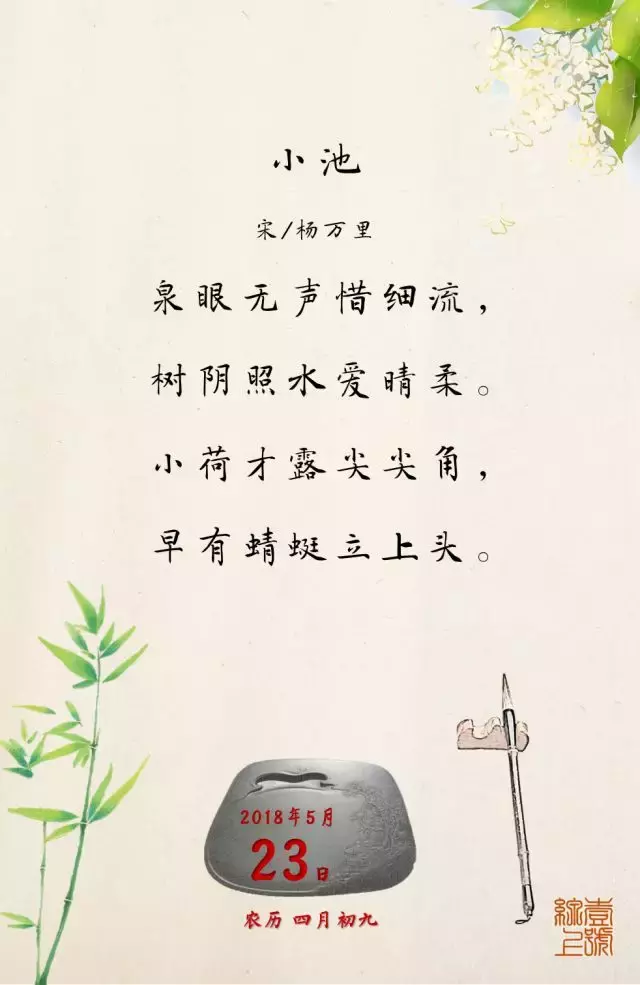 小池
宋/杨万里
泉眼无声惜细流，
树阴照水爱晴柔。
小荷才露尖尖角，
早有蜻蜓立上头。
2018年5月
23日
农历 四月初九